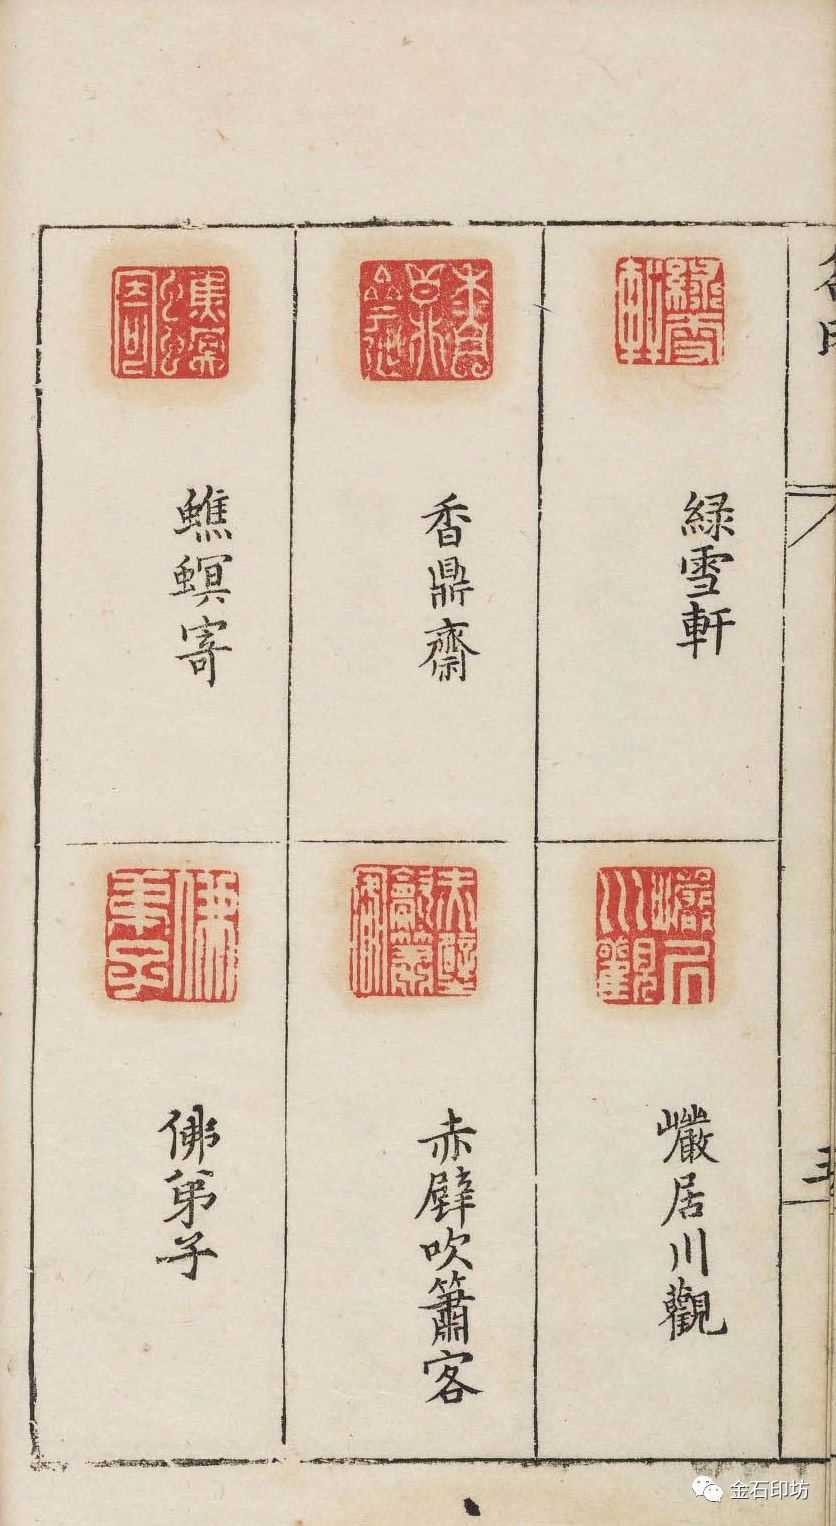 綠雪軒
香鼎齋
蟭螟寄
巗居川觀
赤壁吹簫客
佛弟子
金石印坊